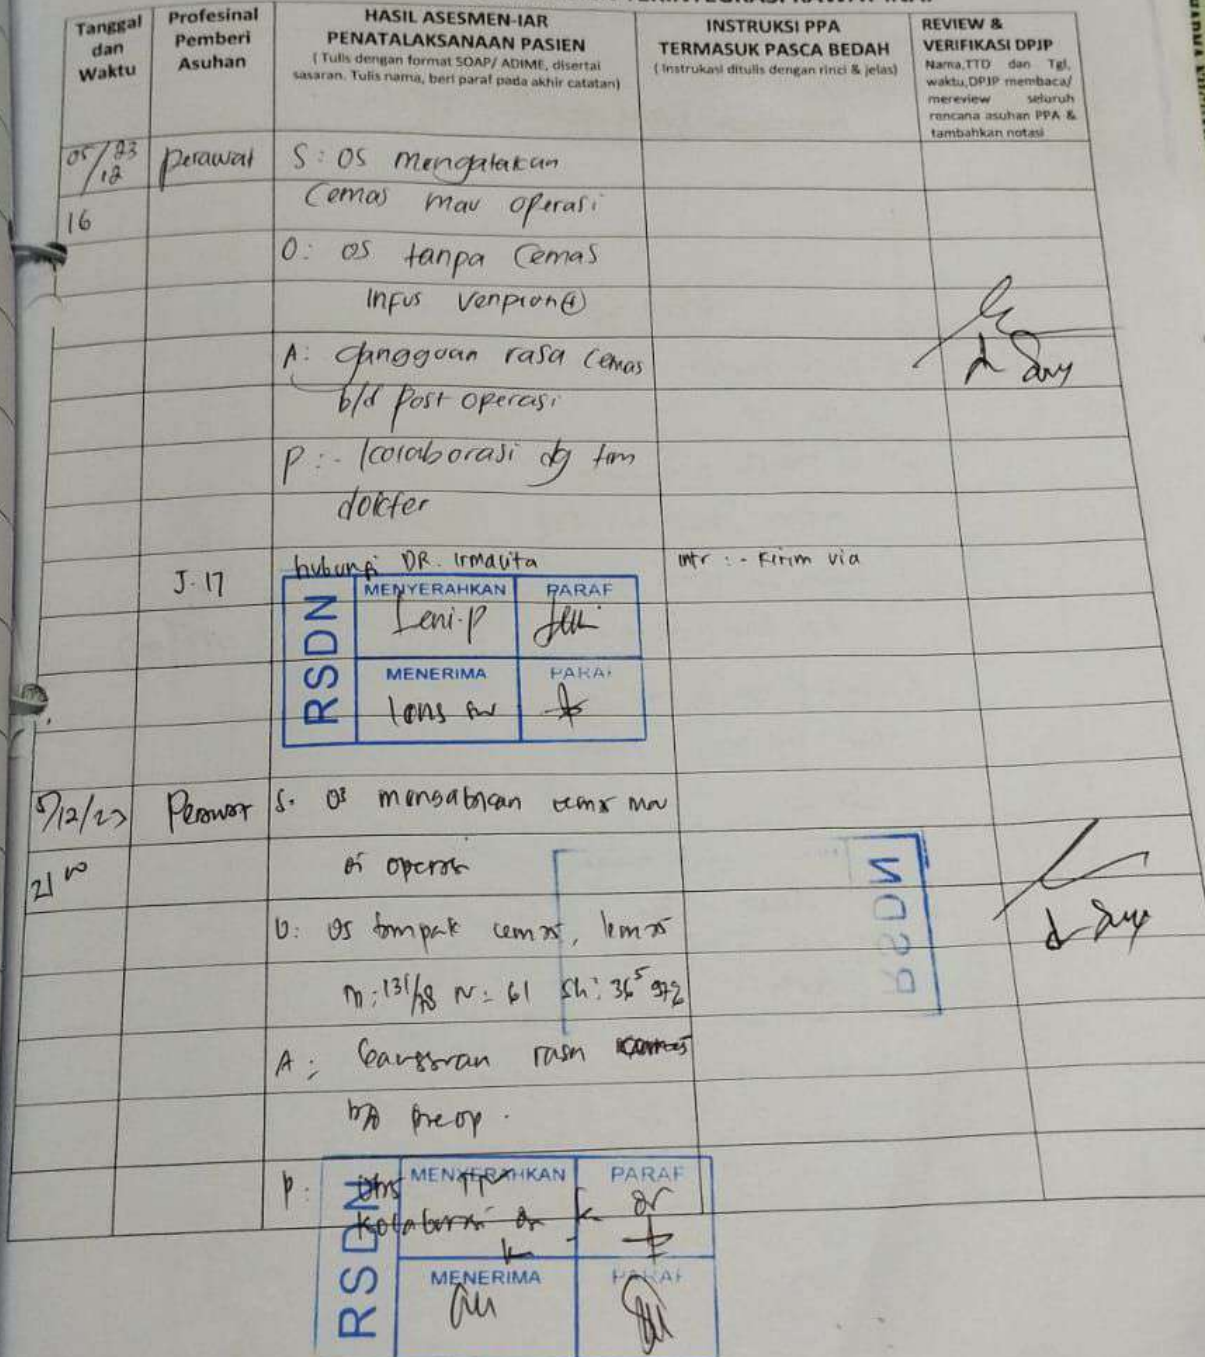 Tanggal dan Waktu
Profesinal Pemberi Asuhan
HASIL ASESMEN-IAR
PENATALAKSANAAN PASIEN
( Tulis dengan format SOAP/ ADIME, disertai
sasaran. Tulis nama, beri paraf pada akhir catatan)
INSTRUKSI PPA
TERMASUK PASCA BEDAH
( Instrukasi ditulis dengan rinci & jelas)
REVIEW &
VERIFIKASI DPJP
Nama,TTD dan Tgl,
waktu,DPJP membaca/
mereview seluruh
rencana asuhan PPA &
tambahkan notasi
05/12 23
perawat
S : OS mengatakan
Cemas mau operasi
16
O: OS tanpa Cemas
Infus Venpron (+)
A: gangguan rasa Cemas
b/d Post operasi
P : - kolaborasi dg tim
dokter
J. 17
hubungi DR. Irmalita
Intr : - Kirim via
RSDN
MENYERAHKAN
PARAF
Leni.P
MENERIMA
PARAF
5/12/23
Perawat
S. OS mengatakan cemas mau
di operasi
21 00
O: OS tampak cemas, lemas
TD: 131/78 N: 61 Sh: 36⁵ 97%
A: Gangguan rasa cemas
b/d preop.
RSDN
P: Obs TTV
kolaborasi
RSDN
MENYERAHKAN
PARAF
MENERIMA
PARAF